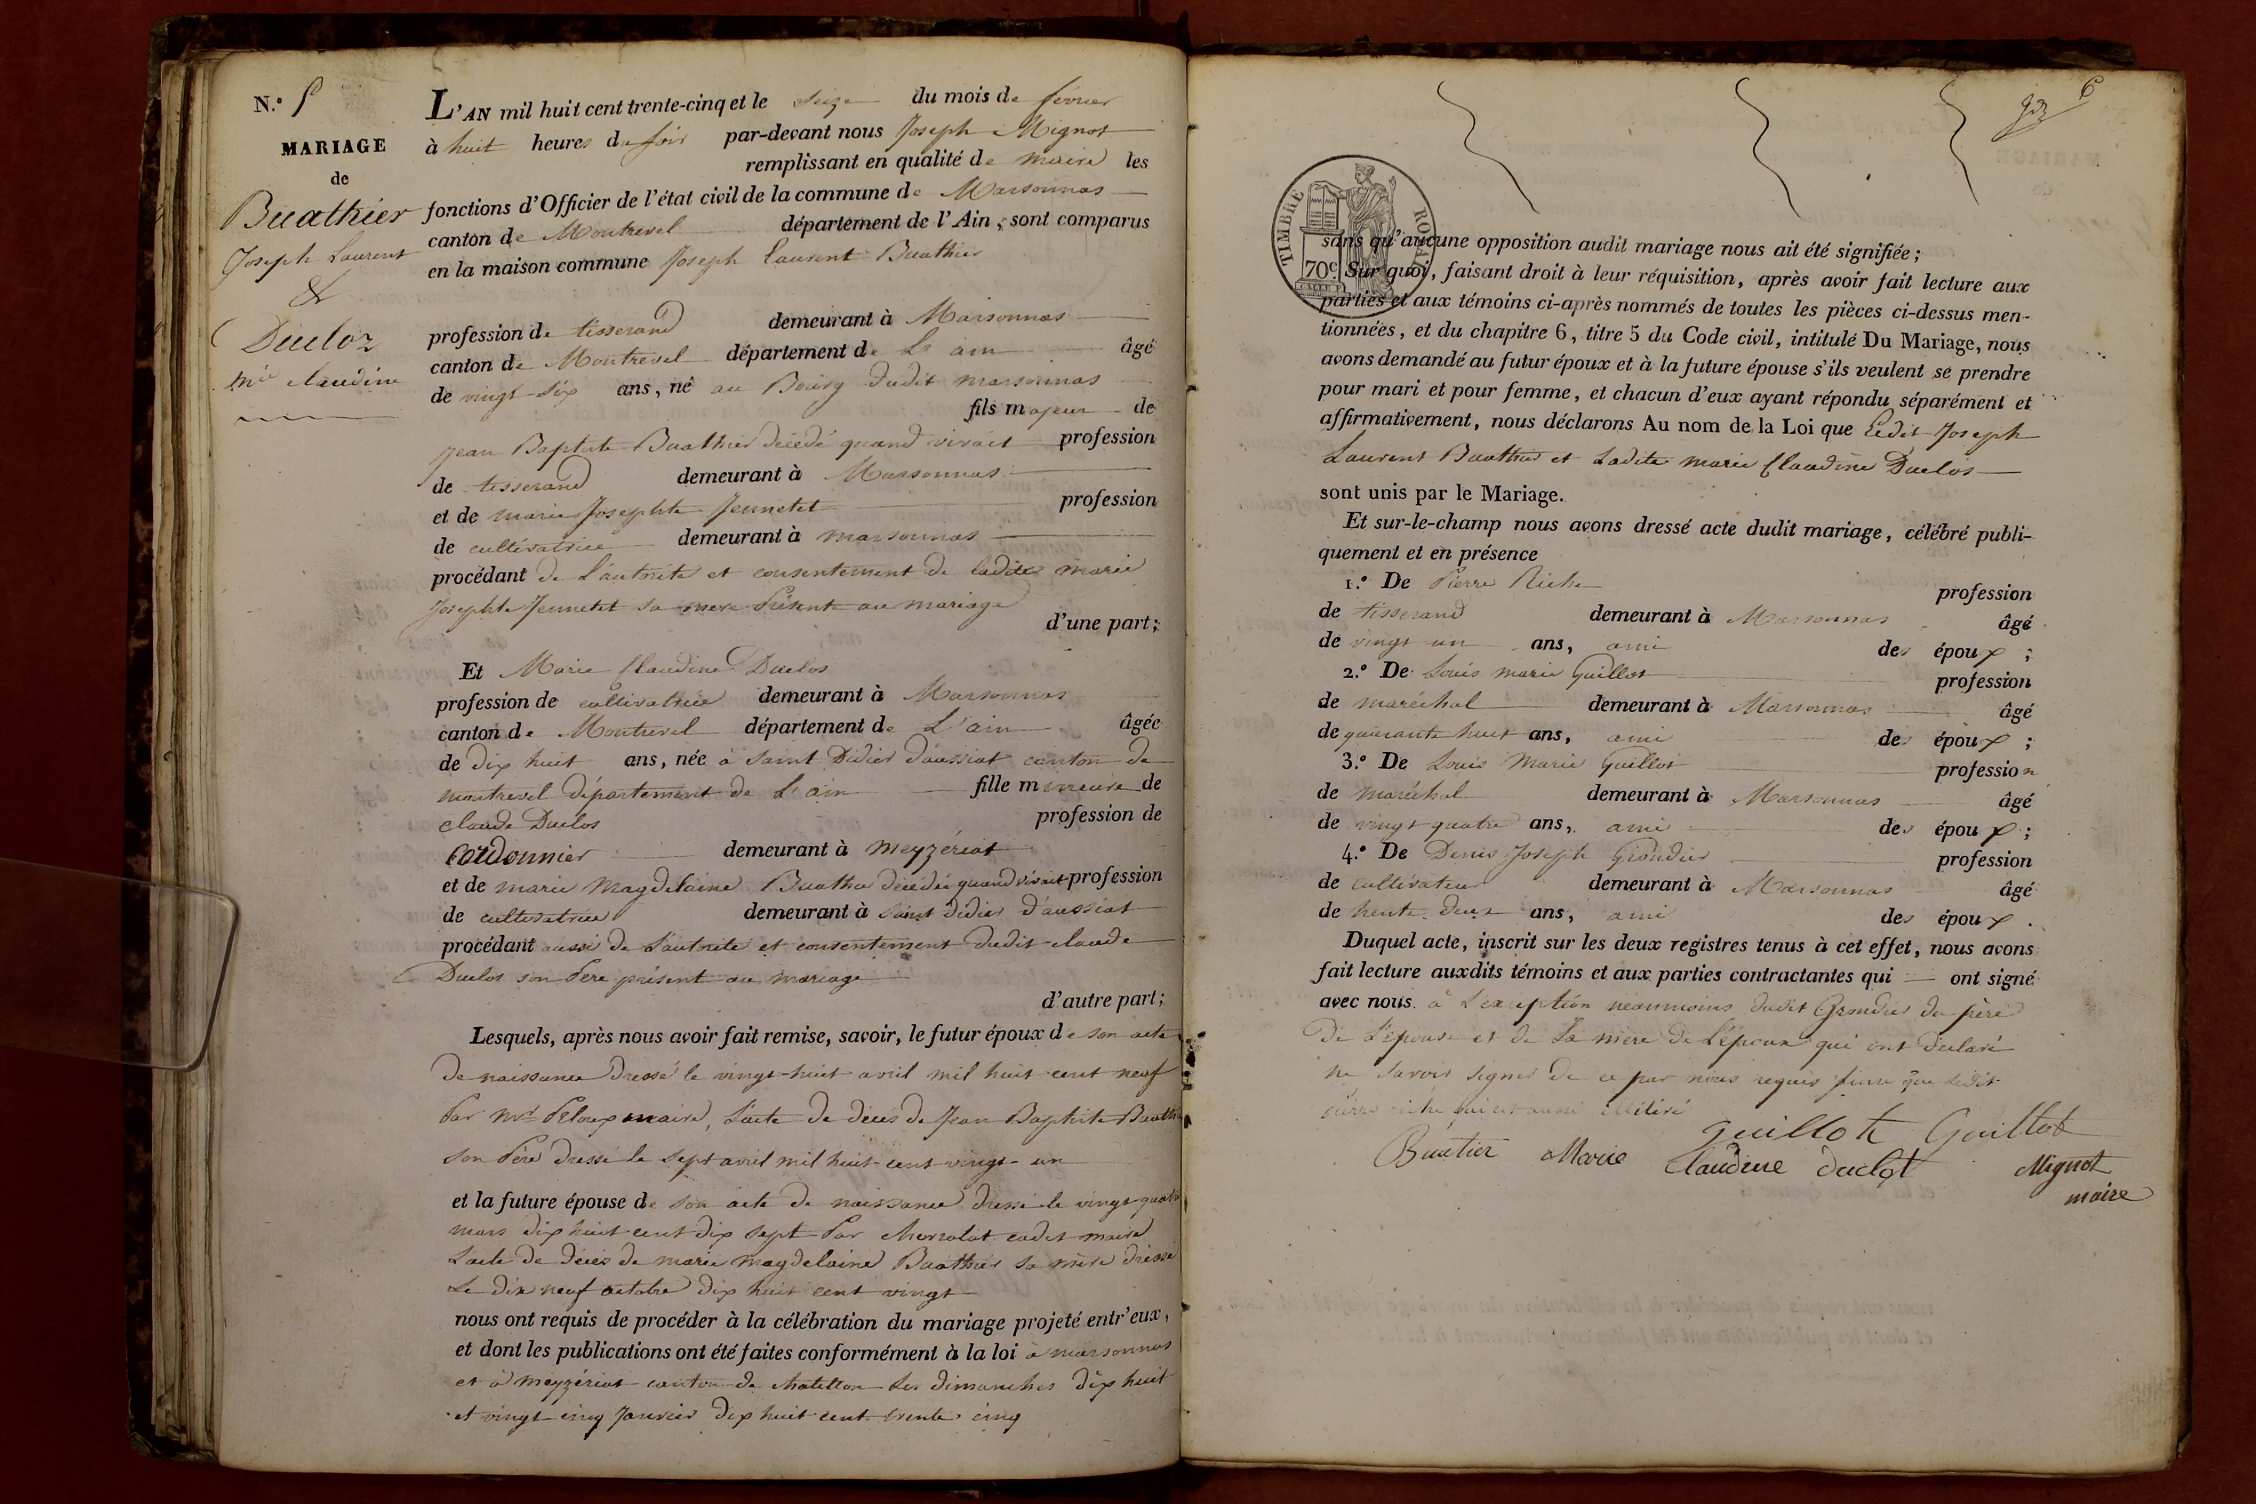 N.º 5
MARIAGE
de
Buathier
Joseph Laurent
&
Ducloz
Mie claudine
L'AN mil huit cent trente-cinq et le seize du mois de fevrier
à huit heures du soir par-devant nous Joseph Mignot
remplissant en qualité de maire les
fonctions d'Officier de l'état civil de la commune de Marsonnas
canton de Montrevel département de l'Ain, sont comparus
en la maison commune Joseph Laurent Buathier
profession de tisserand demeurant à Marsonnas
canton de Montrevel département de L'ain âgé
de vingt six ans, né au Bourg dudit marsonnas
fils majeur de
Jean Baptiste Buathier décédé quand vivait profession
de tisserand demeurant à Marsonnas
et de marie Josephte Jennetet profession
de cultivatrice demeurant à marsonnas
procédant de L'autorité et consentement de ladite marie
Josephte Jennetet sa mere Présente au mariage
d'une part;
Et Marie Claudine Duclos
profession de cultivatrice demeurant à Marsonnas
canton de Montrevel département de L'ain âgée
de dix huit ans, née à Saint Didier d'aussiat canton de
montrevel département de L'ain fille mineure de
claude Duclos profession de
cordonnier demeurant à Meyzériat
et de marie Magdelaine Buathier décédée quand vivait profession
de cultivatrice demeurant à saint didier d'aussiat
procédant aussi de L'autorité et consentement dudit claude
Duclos son Pere présent au mariage
d'autre part;
Lesquels, après nous avoir fait remise, savoir, le futur époux de son acte
de naissance dressé le vingt-huit avril mil huit cent neuf
Par Mr Peloux maire, L'acte de décès de Jean Baptiste Buathier
son Pére dressé le sept avril mil huit-cent-vingt-un
et la future épouse de son acte de naissance dressé le vingt-quatre
mars dix huit cent dix sept Par cadet maire
L'acte de décés de marie magdelaine Buathier sa mère dressé
Le dix neuf octobre dix huit cent vingt
nous ont requis de procéder à la célébration du mariage projeté entr'eux,
et dont les publications ont été faites conformément à la loi à marsonnas
et à Meyzériat canton de chatillon les dimanches dix huit
et vingt cinq Janvier dix huit cent trente cinq
6
TIMBRE ROYAL
70c
sans qu'aucune opposition audit mariage nous ait été signifiée;
Sur quoi, faisant droit à leur réquisition, après avoir fait lecture aux
parties et aux témoins ci-après nommés de toutes les pièces ci-dessus men-
tionnées, et du chapitre 6, titre 5 du Code civil, intitulé Du Mariage, nous
avons demandé au futur époux et à la future épouse s'ils veulent se prendre
pour mari et pour femme, et chacun d'eux ayant répondu séparément et
affirmativement, nous déclarons Au nom de la Loi que Ledit Joseph
Laurent Buathier et Ladite marie Claudine Duclos
sont unis par le Mariage.
Et sur-le-champ nous avons dressé acte dudit mariage, célébré publi-
quement et en présence
1.º De Pierre Riche profession
de tisserand demeurant à Marsonnas âgé
de vingt un ans, ami des époux ;
2.º De Louis marie Guillot profession
de maréchal demeurant à Marsonnas âgé
de quarante huit ans, ami des époux ;
3.º De Louis Marie Guillot profession
de maréchal demeurant à Marsonnas âgé
de vingt-quatre ans, ami des époux ;
4.º De Denis Joseph Grondier profession
de cultivateur demeurant à Marsonnas âgé
de trente deux ans, ami des époux .
Duquel acte, inscrit sur les deux registres tenus à cet effet, nous avons
fait lecture auxdits témoins et aux parties contractantes qui ont signé
avec nous à L'exception néanmoins dudit Grondier du père
De L'épouse et de la mère de L'époux qui ont déclaré
ne savoir signer de ce par nous requis que ledit
riche illitéré
guillot Guillot
Buatier Marie Claudine duclot Mignot
maire